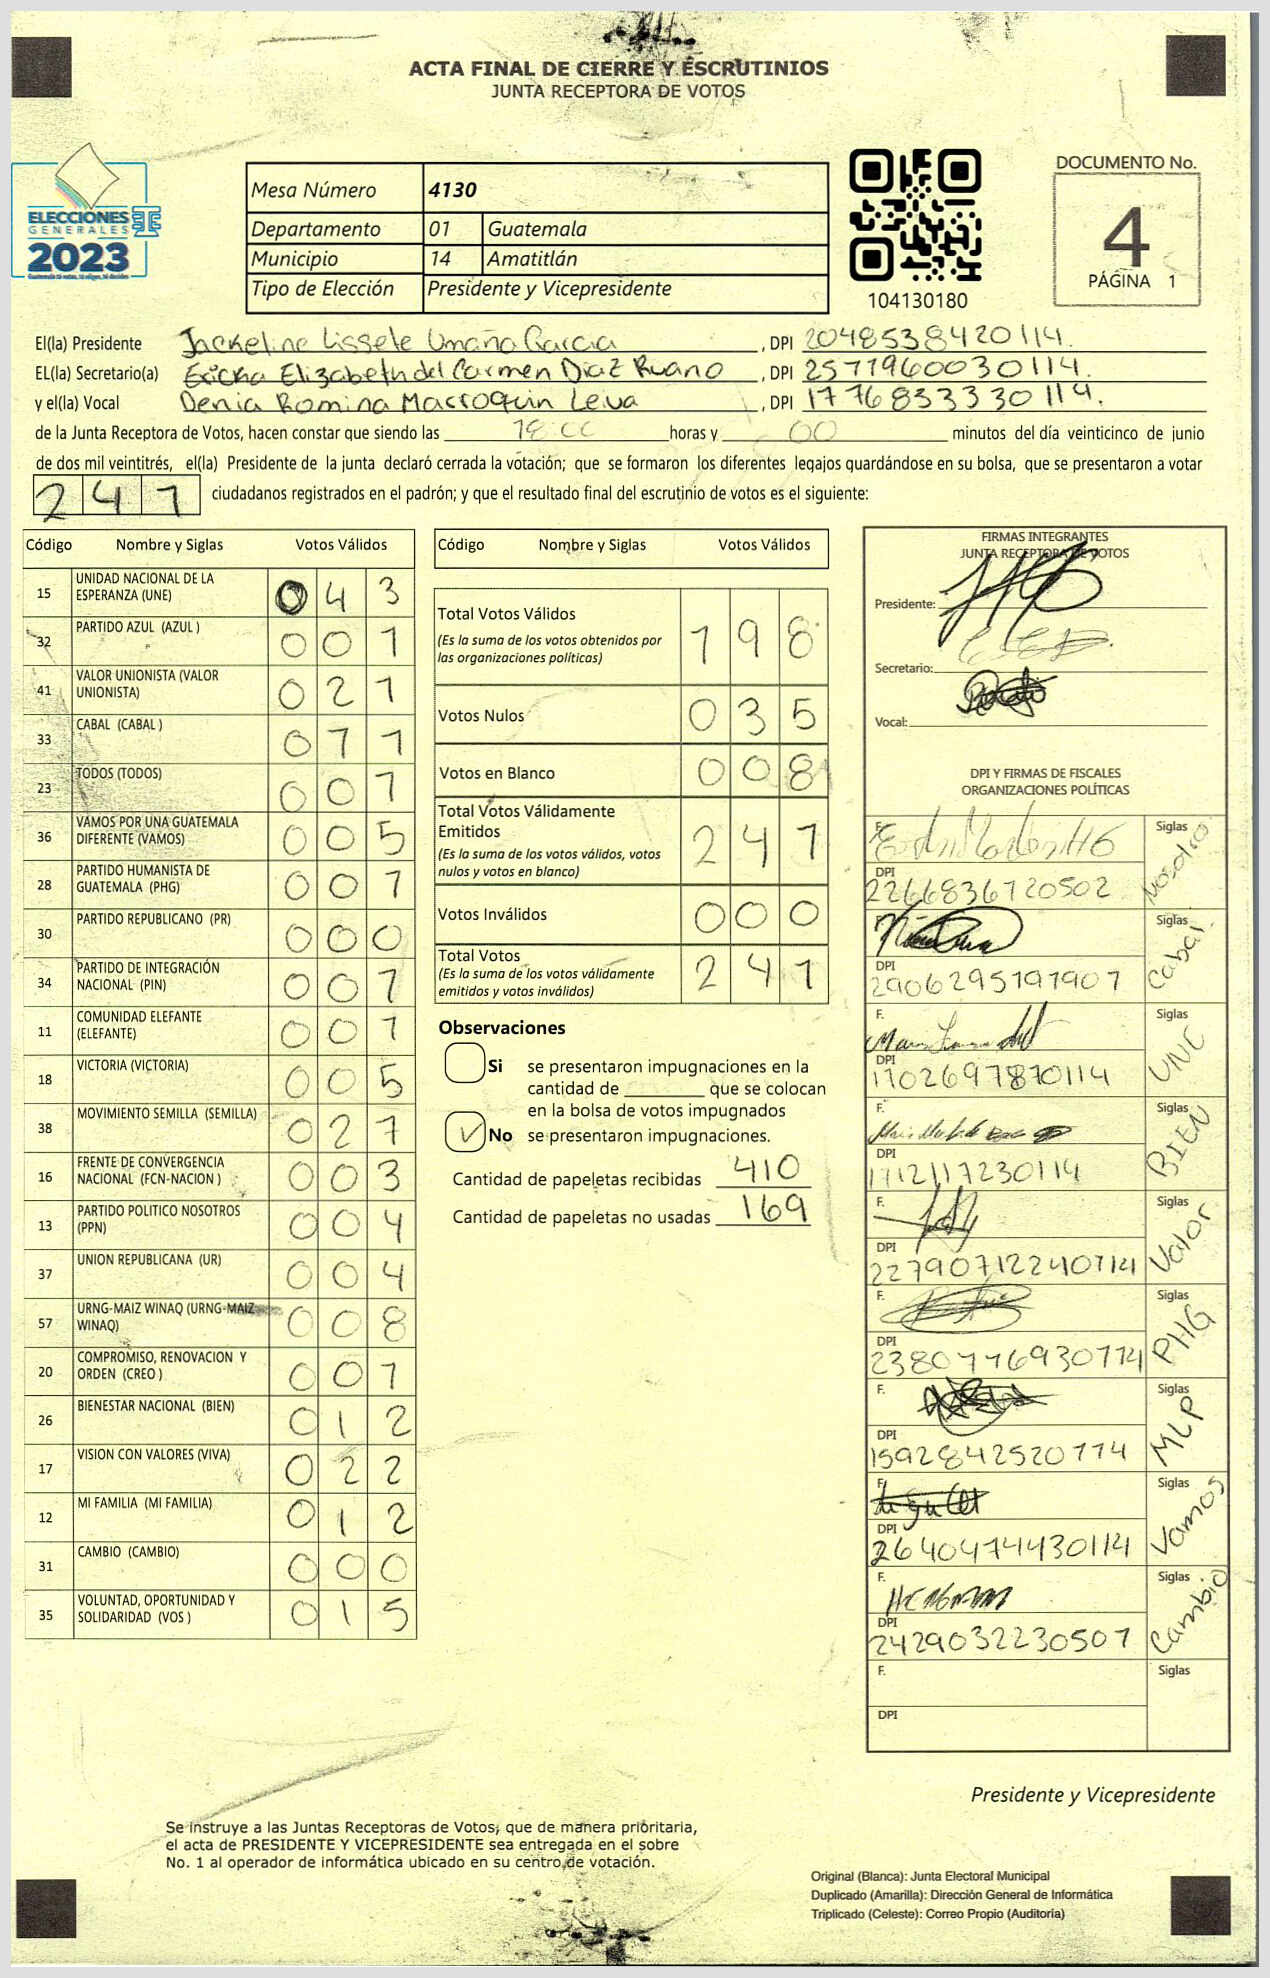 ACTA FINAL DE CIERRE Y ESCRUTINIOS
JUNTA RECEPTORA DE VOTOS
ELECCIONES
GENERALES
2023
Mesa Número 4130
Departamento 01 Guatemala
Municipio 14 Amatitlán
Tipo de Elección Presidente y Vicepresidente
104130180
DOCUMENTO No.
4
PÁGINA 1
El(la) Presidente Jackeline Lissete Umaña Garcia, DPI 2048538420114.
EL(la) Secretario(a) Ericka Elizabeth del Carmen Diaz Ruano, DPI 2577960030114.
y el(la) Vocal Denia Romina Marroquin Leiva, DPI 1776833330114.
de la Junta Receptora de Votos, hacen constar que siendo las 18:00 horas y 00 minutos del día veinticinco de junio
de dos mil veintitrés, el(la) Presidente de la junta declaró cerrada la votación; que se formaron los diferentes legajos guardándose en su bolsa, que se presentaron a votar
241 ciudadanos registrados en el padrón; y que el resultado final del escrutinio de votos es el siguiente:
Código Nombre y Siglas Votos Válidos
15 UNIDAD NACIONAL DE LA ESPERANZA (UNE) 043
32 PARTIDO AZUL (AZUL ) 001
41 VALOR UNIONISTA (VALOR UNIONISTA) 021
33 CABAL (CABAL ) 011
23 TODOS (TODOS) 001
36 VAMOS POR UNA GUATEMALA DIFERENTE (VAMOS) 005
28 PARTIDO HUMANISTA DE GUATEMALA (PHG) 001
30 PARTIDO REPUBLICANO (PR) 000
34 PARTIDO DE INTEGRACIÓN NACIONAL (PIN) 007
11 COMUNIDAD ELEFANTE (ELEFANTE) 001
18 VICTORIA (VICTORIA) 005
38 MOVIMIENTO SEMILLA (SEMILLA) 021
16 FRENTE DE CONVERGENCIA NACIONAL (FCN-NACION ) 003
13 PARTIDO POLITICO NOSOTROS (PPN) 004
37 UNION REPUBLICANA (UR) 004
57 URNG-MAIZ WINAQ (URNG-MAIZ WINAQ) 008
20 COMPROMISO, RENOVACION Y ORDEN (CREO ) 001
26 BIENESTAR NACIONAL (BIEN) 012
17 VISION CON VALORES (VIVA) 022
12 MI FAMILIA (MI FAMILIA) 012
31 CAMBIO (CAMBIO) 000
35 VOLUNTAD, OPORTUNIDAD Y SOLIDARIDAD (VOS ) 015
Código Nombre y Siglas Votos Válidos
Total Votos Válidos 198
(Es la suma de los votos obtenidos por
las organizaciones políticas)
Votos Nulos 035
Votos en Blanco 008
Total Votos Válidamente
Emitidos 241
(Es la suma de los votos válidos, votos
nulos y votos en blanco)
Votos Inválidos 000
Total Votos 241
(Es la suma de los votos válidamente
emitidos y votos inválidos)
Observaciones
Si se presentaron impugnaciones en la
cantidad de ________ que se colocan
en la bolsa de votos impugnados
✓ No se presentaron impugnaciones.
Cantidad de papeletas recibidas 410
Cantidad de papeletas no usadas 169
FIRMAS INTEGRANTES
JUNTA RECEPTORA DE VOTOS
Presidente:
Secretario:
Vocal:
DPI Y FIRMAS DE FISCALES
ORGANIZACIONES POLÍTICAS
F. Siglas Nosotro
DPI 2266836720502
F. Siglas Cabal
DPI 2906295191901
F. Siglas UNE
DPI 1702697870114
F. Siglas BIEN
DPI 1712117230114
F. Siglas Valor
DPI 2279071224 0114
F. Siglas PHG
DPI 2380776930114
F. Siglas MLP
DPI 1592842520114
F. Siglas Vamos
DPI 2640474430114
F. Siglas Cambio
DPI 2429032230507
F. Siglas
DPI
Presidente y Vicepresidente
Se instruye a las Juntas Receptoras de Votos, que de manera prioritaria,
el acta de PRESIDENTE Y VICEPRESIDENTE sea entregada en el sobre
No. 1 al operador de informática ubicado en su centro de votación.
Original (Blanca): Junta Electoral Municipal
Duplicado (Amarilla): Dirección General de Informática
Triplicado (Celeste): Correo Propio (Auditoría)